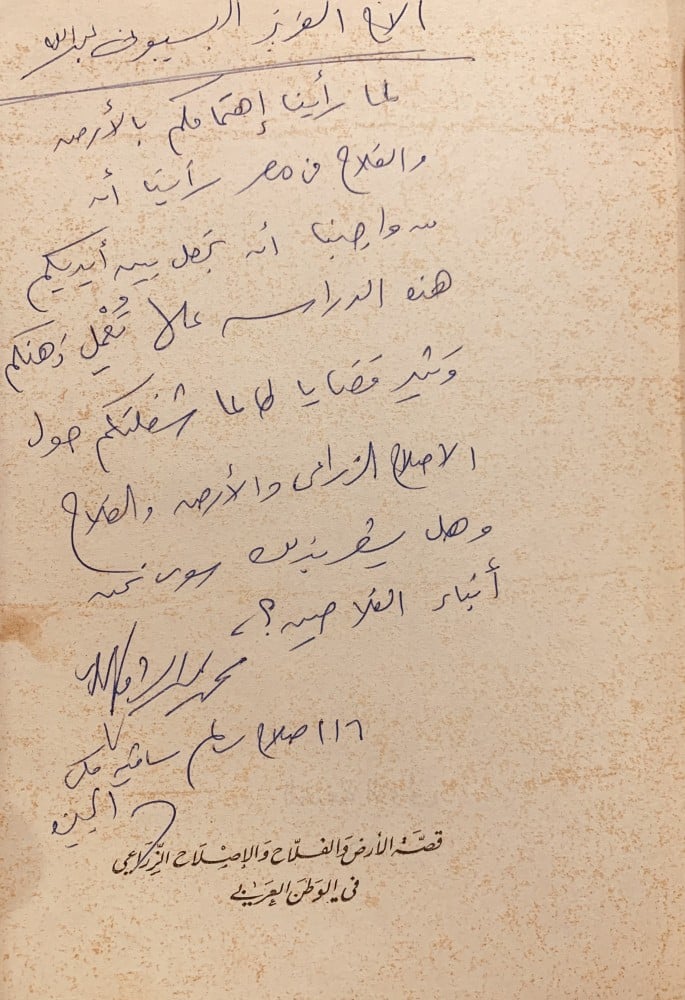 الاخ العزيز البسيوني عبدالله
لما رأينا إهتمامكم بالأرض
والفلاح فى مصر رأينا أنه
من واجبنا أن نجعل بين أيديكم
هذه الدراسه علها تُعْمِل ذهنكم
وتثير قضايا طالما شغلتكم حول
الاصلاح الزراعى والأرض والفلاح
وهل يشعر بذلك سوى نحن
أبناء الفلاحين؟
محمد
١١٦ صلاح سالم ساقيه مكى
الجيزه
قصَّة الأرض وَالفلاّح وَالإصْلاح الزِّرَاعِي
في الوَطن العَرَبي